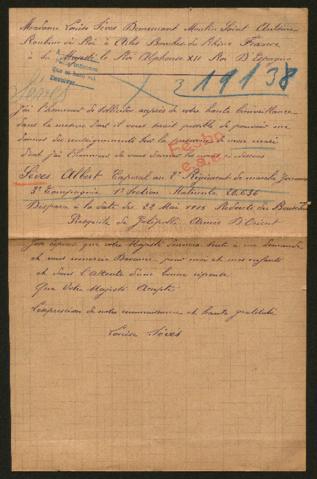 Madame Louise Sèves Boulevard Moulin Saint Antoine
Roubine du Roi à Arles Bouches du Rhône France
à sa Majesté le Roi Alphonse XII Roi D'Espagne
Sèves
219138
J'ai l'honneur de solliciter auprès de votre haute bienveillance
dans la mesure dont il vous serait possible de pouvoir me
donner des renseignements sur la de mon mari
dont j'ai l'honneur de vous donner les noms ci dessous
Sèves Albert Caporal au 2e Régiment de marche
3e Compagnie 1e Section Matricule 20.636
Disparu à la date du 22 Mai Redoute du Bouchet
Presqu'ile de Armée D'Orient
J'ose espérer que votre Majesté donnera suite à ma demande
et vous remercie D'avance pour moi et mes enfants
et dans l'attente d'une bonne réponse
Que Votre Majesté Accepte
L'expression de notre reconnaissance et haute gratitude
Louise Sèves